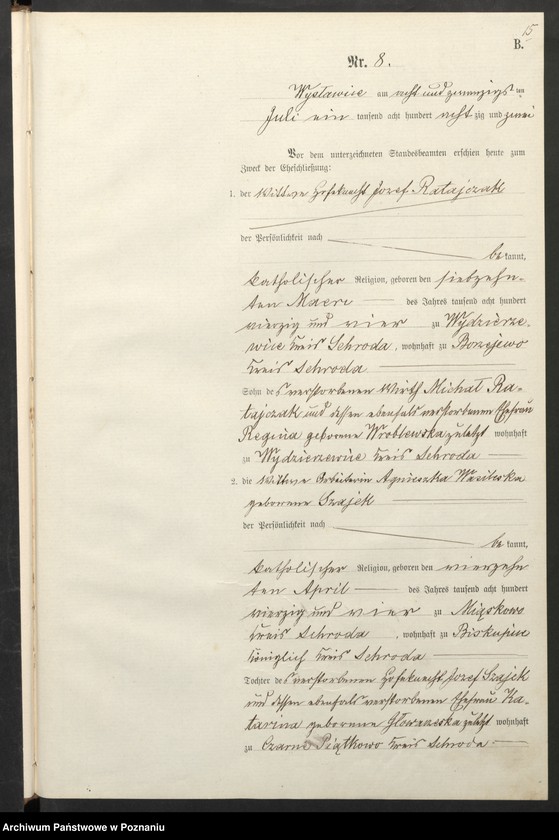 15
B.
Nr. 8.
Wysławice am acht und zwanzigs ten
Juli ein tausend acht hundert acht zig und zwei
Vor dem unterzeichneten Standesbeamten erschien heute zum
Zweck der Eheschließung:
1. der Wittwe Hofeknecht Jozef Ratajczak
der Persönlichkeit nach
be kannt,
katholischer Religion, geboren den siebzehn-
ten Maerz des Jahres tausend acht hundert
vierzig und vier zu Wydzierze-
wice Kreis Schroda, wohnhaft zu Borzejewo
Kreis Schroda
Sohn des verstorbenen Wirth Michał Ra-
tajczak und dessen ebenfalls verstorbenen Ehefrau
Regina geborene Wroblewska zuletzt wohnhaft
zu Wydzierzewice Kreis Schroda
2. die Wittwe Arbeiterin Agnieszka Wasilewska
geborene Szajek
der Persönlichkeit nach
be kannt,
katholischer Religion, geboren den vierzehn
ten April des Jahres tausend acht hundert
vierzig und vier zu Miąskowo
Kreis Schroda, wohnhaft zu Biskupice
Königlich Kreis Schroda
Tochter des verstorbenen Hofeknecht Jozef Szajek
und dessen ebenfalls verstorbenen Ehefrau Ka-
tarina geborene zuletzt wohnhaft
zu Czarne Piątkowo Kreis Schroda.
Archiwum Państwowe w Poznaniu